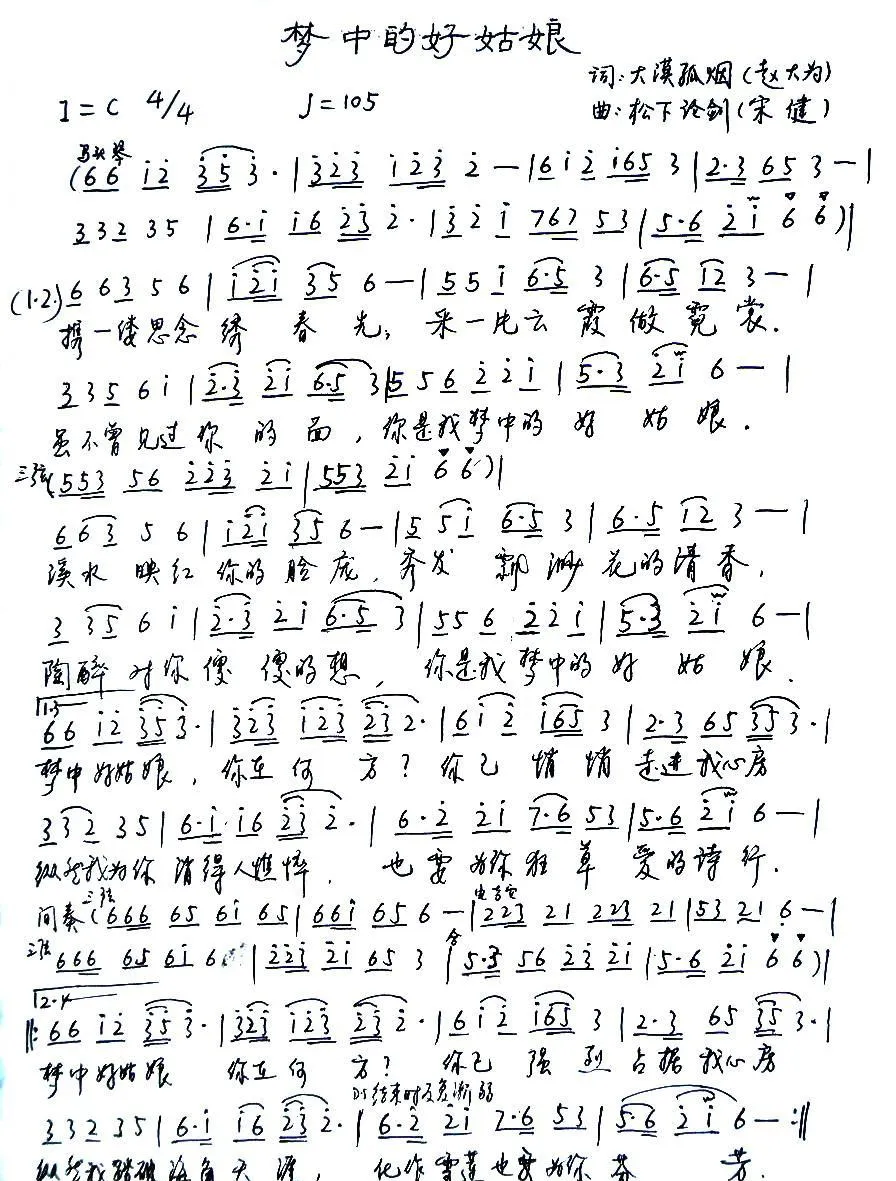 梦中的好姑娘
词:大漠孤烟(赵大为)
1=C 4/4 ♩=105
曲:松下论剑(宋健)
马头琴
(66 i2 353·|323 123 2—|6i2 i65 3|2·3 65 3—|
332 35|6·i i6 23 2·|32i 767 53|5·6 2i 6 6)|
(1.2.) 6 63 5 6|i2i 35 6—|55 i 6·5 3|6·5 i2 3—|
携一缕思念绣春光,采一片云霞做霓裳.
335 6i|2·3 2i 6·5 3|5 56 22i|5·3 2i 6—|
虽不曾见过你的面,你是我梦中的好姑娘.
三弦(553 56 223 2i|553 2i 6 6)|
663 5 6|i2i 35 6—|5 5i 6·5 3|6·5 i2 3—|
溪水映红你的脸庞,秀发飘渺花的清香,
3 35 6i|2·3 2i 6·5 3|55 6 22i|5·3 2i 6—|
陶醉对你傻傻的想,你是我梦中的好姑娘.
1.3
66 i2 353·|323 i23 23 2·|6i2 i65 3|2·3 65 353·|
梦中好姑娘,你在何方?你已悄悄走进我心房
332 35|6·i i6 23 2·|6·2 2i 7·6 53|5·6 2i 6—|
纵然我为你消得人憔悴,也要为你狂草爱的诗行.
三弦 电吉它
间奏(666 65 6i 65|66i 65 6—|223 21 223 21|53 21 6—|
三弦 666 65 6i 6|223 2i 65 3|合 5·3 56 23 2i|5·6 2i 6 6)|
2.4
‖:66 i2 353·|323 i23 23 2·|6i2 i65 3|2·3 65 353·|
梦中好姑娘 你在何方?你已强烈占据我心房
DS结束时反复渐弱
332 35|6·i i6 23 2·|6·2 2i 7·6 53|5·6 2i 6—:‖
纵然我踏破海角天涯,化作雪莲也要为你芬芳.